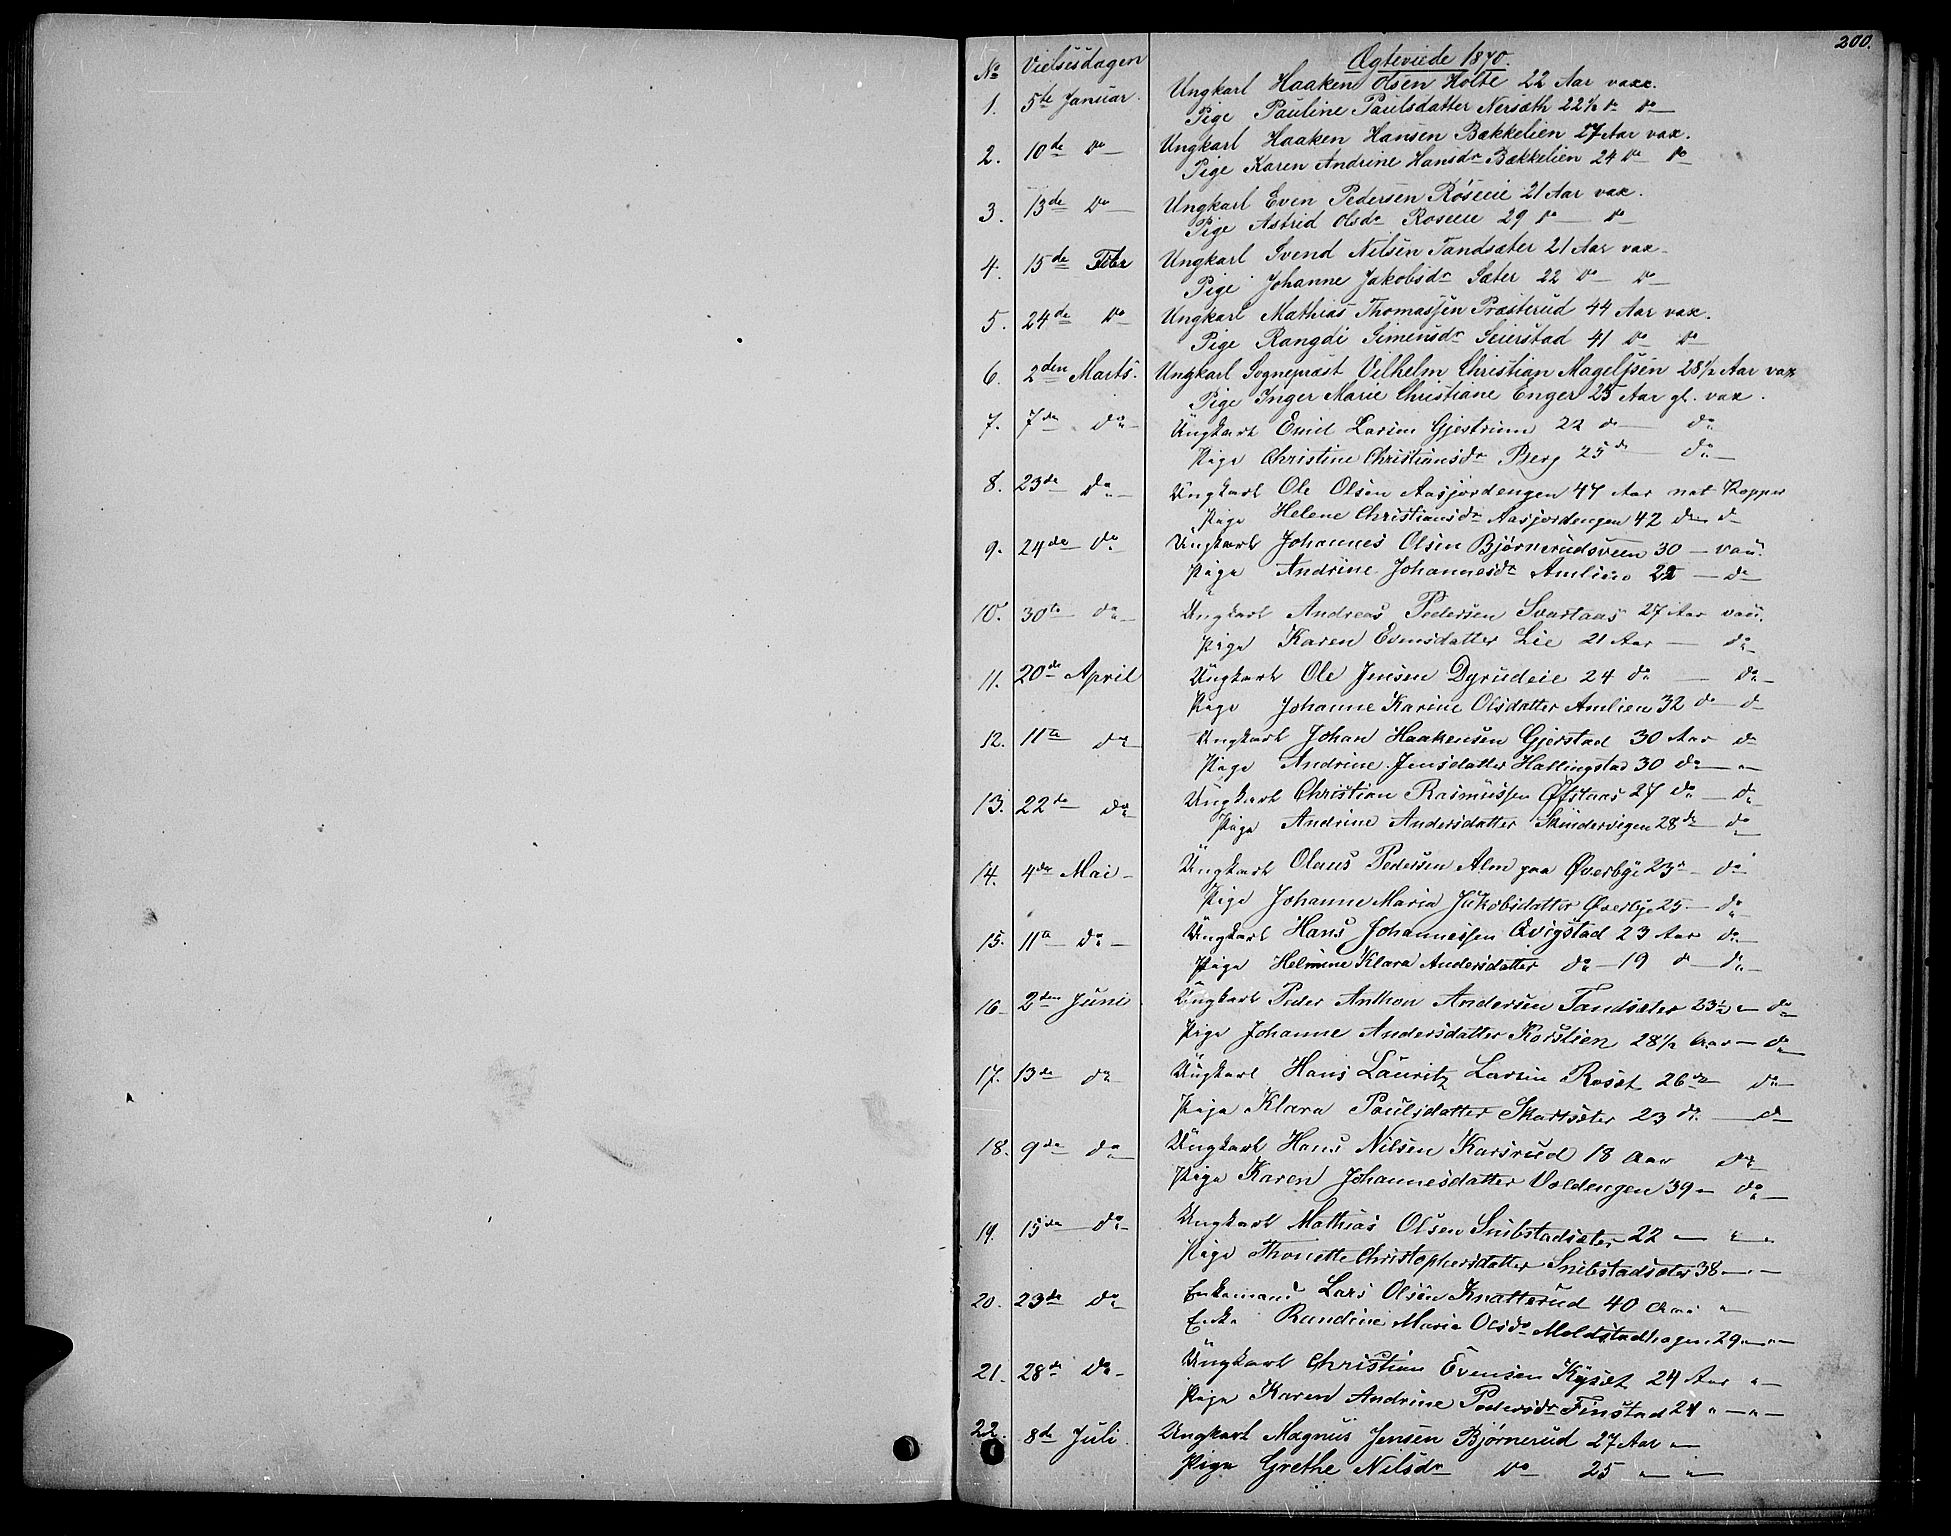 200.
No Vielsesdagen Ægteviede 1870.
1. 5te Januar. Ungkarl Haaken Olsen Holte 22 Aar vaxx.
Pige Pauline Paulsdatter Nersæth 22½ do do
2. 10de do Ungkarl Haaken Hansen Bækkelien 27 Aar vax.
Pige Karen Andrine Hansdr Bækkelien 24 do do
3. 13de do Ungkarl Even Pedersen Røseie 21 Aar vax.
Pige Astrid Olsdr Roseie 29 do do
4. 15de Febr Ungkarl Svend Nilsen Tandsæter 21 Aar vax.
Pige Johanne Jakobsdr Sæter 22 do do
5. 24de do Ungkarl Mathias Thomassen Præsterud 44 Aar vax.
Pige Rangdi Simensdr Seierstad 41 do do
6. 2den Marts. Ungkarl Sogneprest Vilhelm Christian Magelssen 28½ Aar vax
Pige Inger Marie Christiane Enger 25 Aar gl. vax.
7. 7de do Ungkarl Emil Larsen Gjestrum 22 do do
Pige Christine Christiansdr Berg 25 do do
8. 23de do Ungkarl Ole Olsen Aasjordengen 47 Aar nat Kopper
Pige Helene Christiansdr Aasjordengen 42 do do
9. 24de do Ungkarl Johannes Olsen Bjørnerudsveen 30 - vax.
Pige Andrine Johannesdr Amlien 22 - do
10. 30te do Ungkarl Andreas Pedersen Svartaas 27 Aar vax.
Pige Karen Evensdatter Lie 21 Aar - do
11. 20de April Ungkarl Ole Jensen Dyrudeie 24 do - do
Pige Johanne Karine Olsdatter Amlien 32 do - do
12. 11te do Ungkarl Johan Haakensen Gjerstad 30 Aar do
Pige Andrine Jensdatter Hallingstad 30 do - "
13. 22de do Ungkarl Christian Rasmussen Øfstaas 27 do - do
Pige Andrine Andersdatter Skindervigen 28 do - do
14. 4de Mai Ungkarl Olaus Pedersen Alm paa Øverbye 23 - do
Pige Johanne Maria Jakobsdatter Øverbye 25 - do
15. 11te do Ungkarl Hans Johannessen Qvigstad 23 Aar do
Pige Helmine Klara Andersdatter do - 19 do - do
16 2den Juni Ungkarl Peder Anthon Andersen Tandsæter 23½ " do
Pige Johanne Andersdatter Korslien 28½ Aar - do
17. 13de do Ungkarl Hans Lauritz Larsen Roset 26 do do
Pige Klara Paulsdatter Skartsæter 23 do - do
18. 9de do Ungkarl Hans Nilsen Karsrud 18 Aar do
Pige Karen Johannesdatter Voldengen 39 " do
19. 15de do Ungkarl Mathias Olsen Snibstadsæter 22 " " "
Pige Thonette Christophersdatter Snibstadsæter 38 - " -
20. 23de do Enkemand Lars Olsen Knatterud 40 Aar "
Enke Randine Marie Olsdr Moldstadhagen 29 " - " -
21. 28de do Ungkarl Christian Evensen Kyset 24 Aar "
Pige Karen Andrine Pedersdr Finstad 24 " - " -
22. 8de Juli Ungkarl Magnus Jensen Bjørnerud 27 Aar "
Pige Grethe Nilsdr do 25 " "